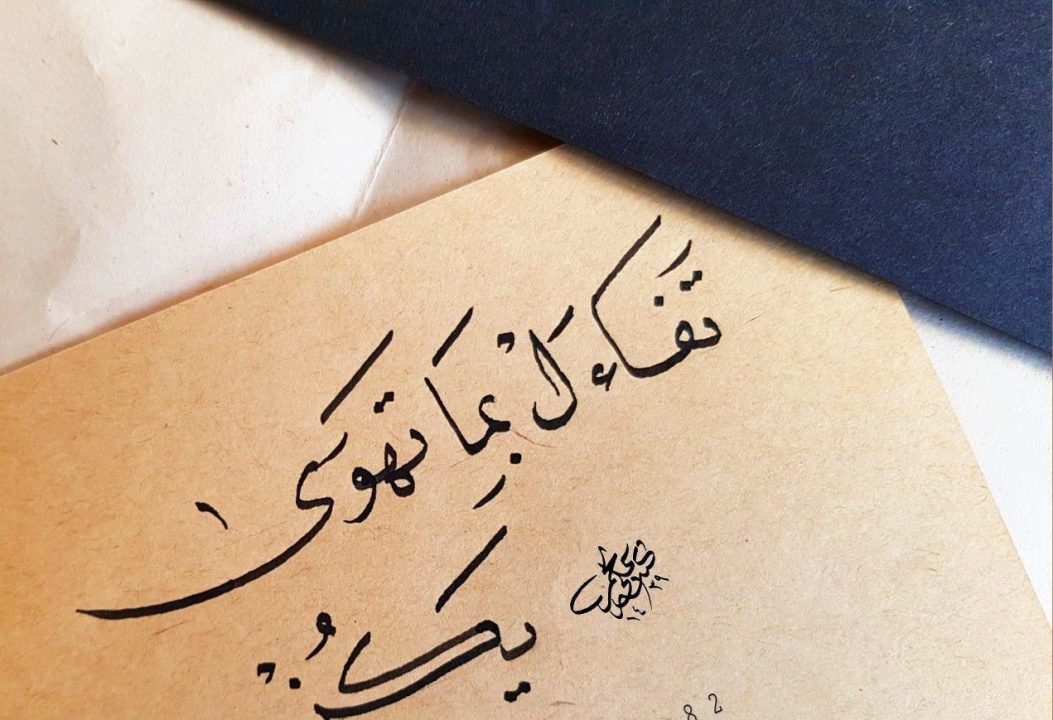 تَفاءلْ بِما تهوى
يكُن
8 2